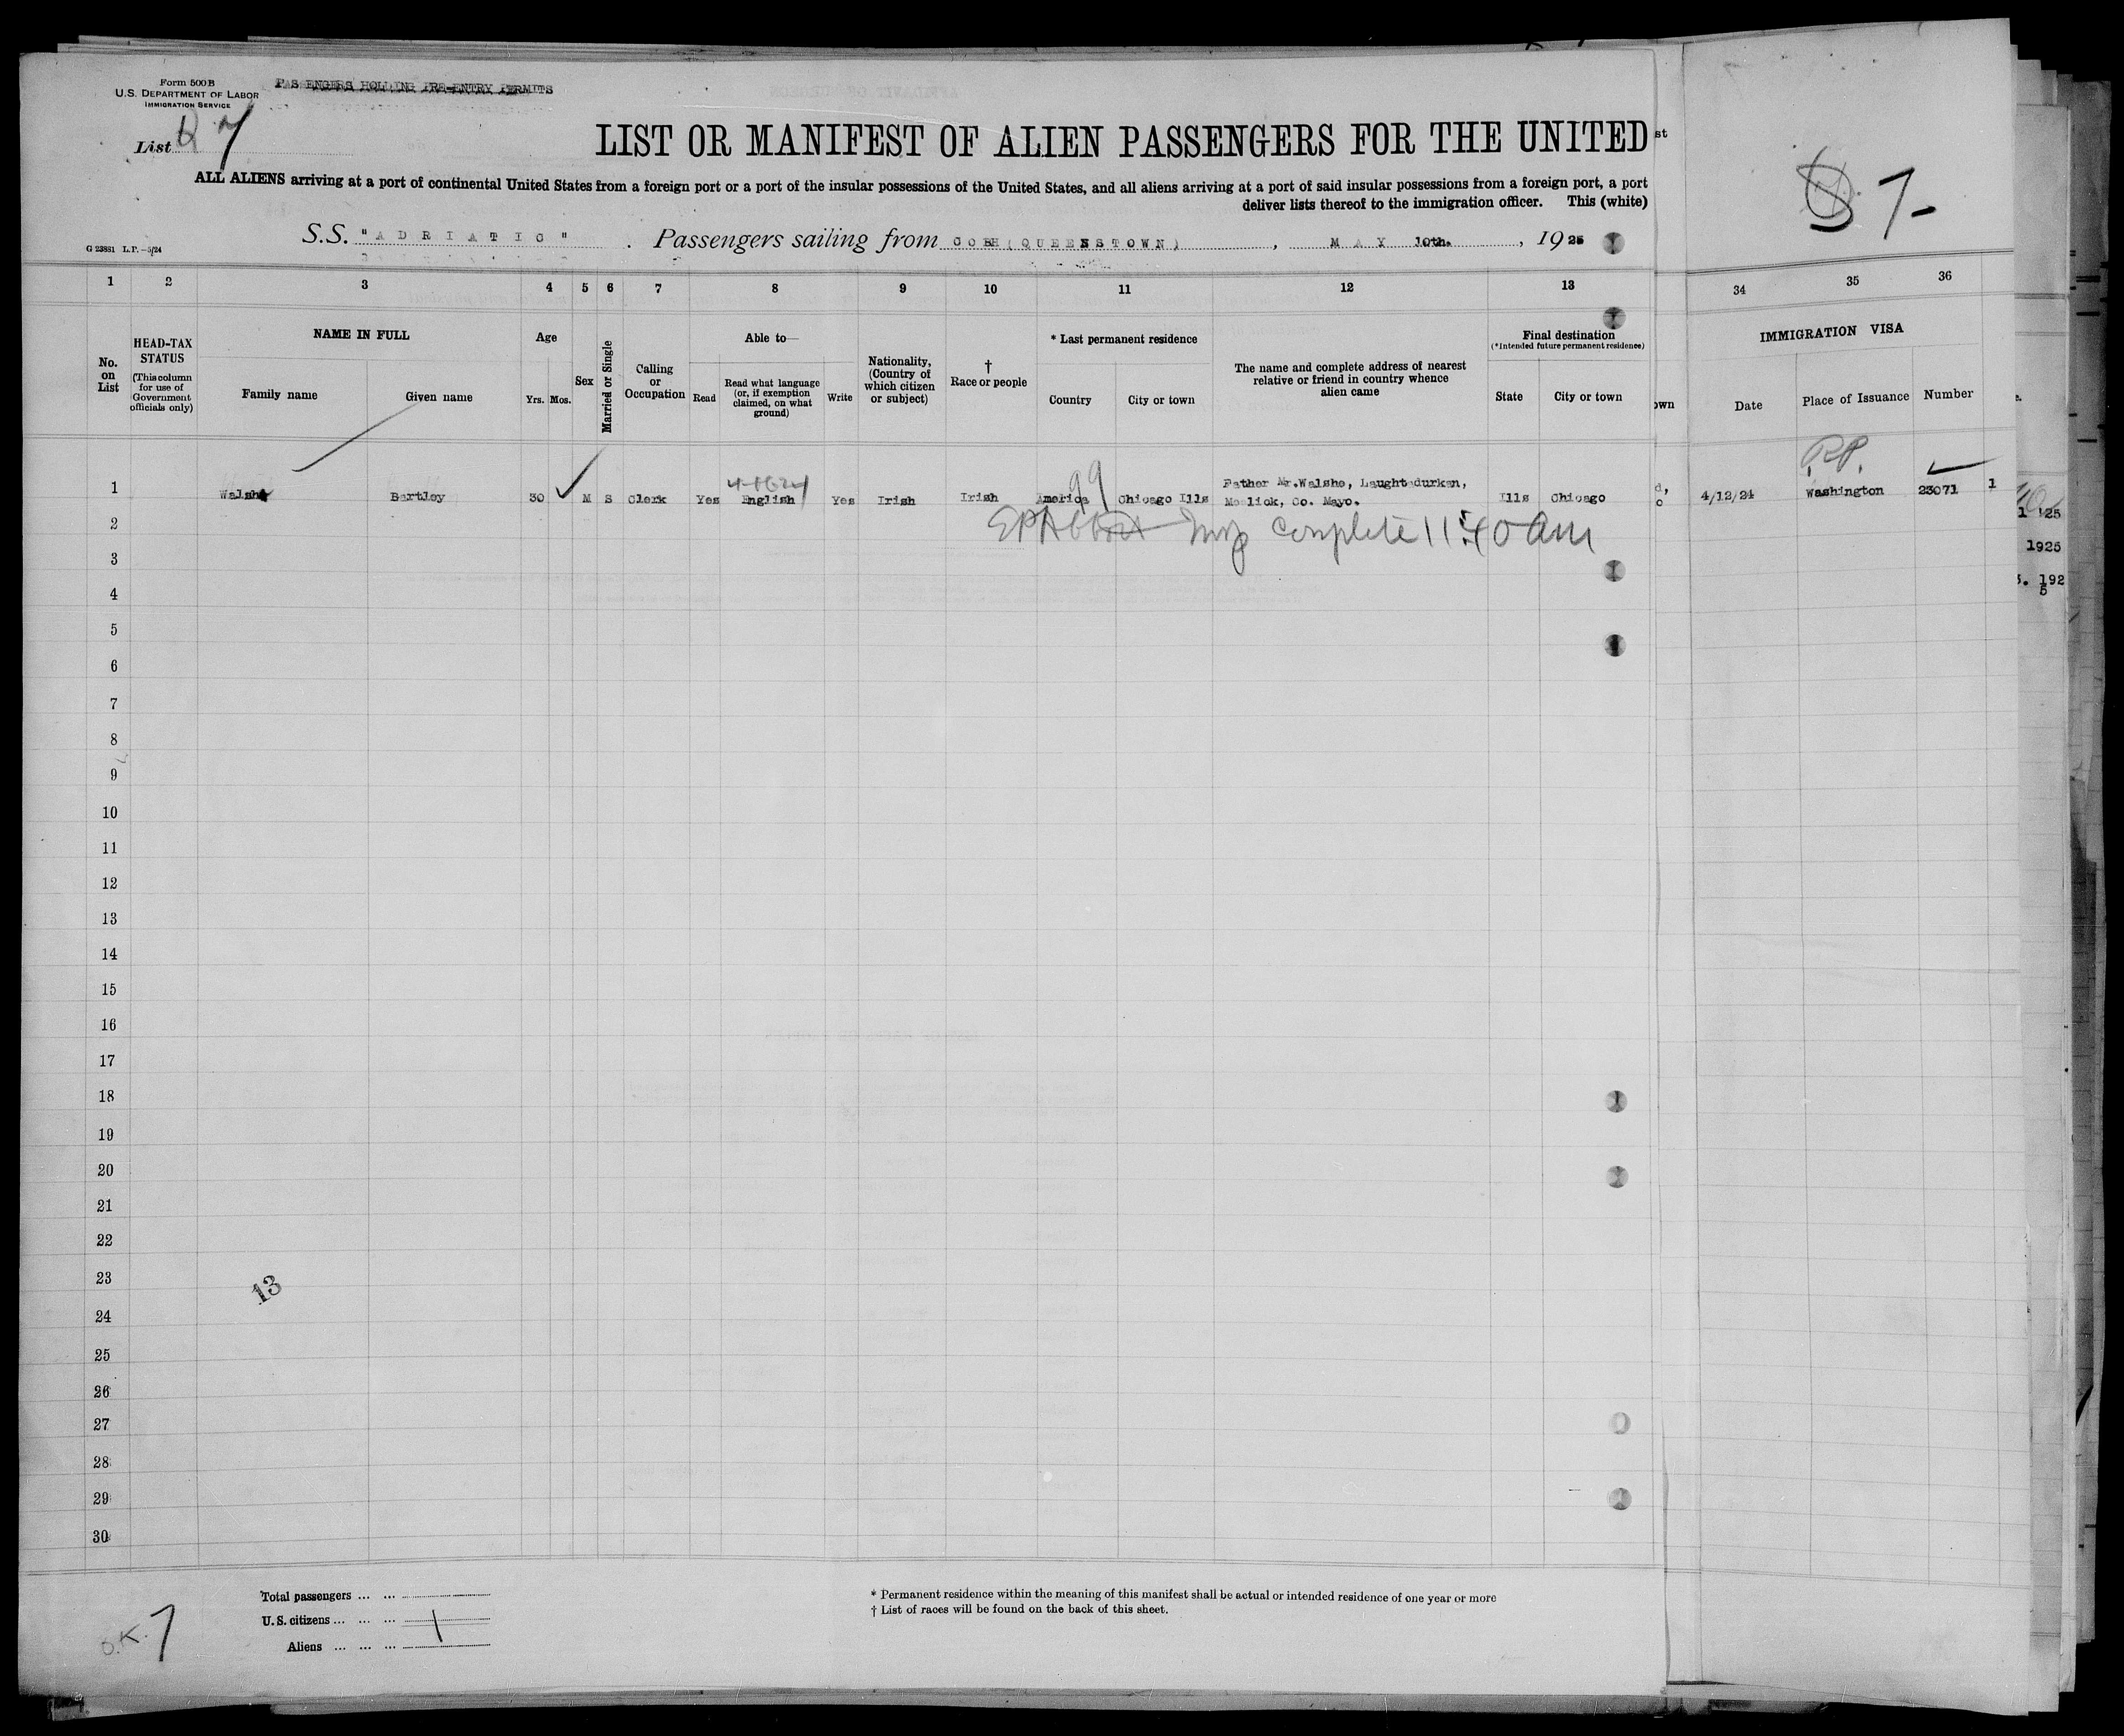 Form 500 B
U.S. DEPARTMENT OF LABOR
IMMIGRATION SERVICE
PASSENGERS HOLDING PRE-ENTRY PERMITS
List 7
LIST OR MANIFEST OF ALIEN PASSENGERS FOR THE UNITED
st
7-
ALL ALIENS arriving at a port of continental United States from a foreign port or a port of the insular possessions of the United States, and all aliens arriving at a port of said insular possessions from a foreign port, a port
deliver lists thereof to the immigration officer. This (white)
G 23881 L.P.-5/24
S.S. "ADRIATIC". Passengers sailing from COBH (QUEENSTOWN), MAY 10th., 1925
1 2 3 4 5 6 7 8 9 10 11 12 13 34 35 36
No. on List
HEAD-TAX STATUS (This column for use of Government officials only)
NAME IN FULL
Family name Given name
Age
Yrs. Mos.
Sex
Married or Single
Calling or Occupation
Able to—
Read
Read what language (or, if exemption claimed, on what ground)
Write
Nationality, (Country of which citizen or subject)
† Race or people
* Last permanent residence
Country City or town
The name and complete address of nearest relative or friend in country whence alien came
Final destination
(*Intended future permanent residence)
State City or town
own
IMMIGRATION VISA
Date Place of Issuance Number
99
R.P.
1 Walsh Bartley 30 M S Clerk Yes English Yes Irish Irish America Chicago Ills Father Mr. Walshe, Laughtadurkan, Ills Chicago d, 4/12/24 Washington 23071 1
Meelick, Co. Mayo. o
complete 11:40 am
1 '25
1925
. 192
5
2
3
4
5
6
7
8
9
10
11
12
13
14
15
16
17
18
19
20
21
22
23
13
24
25
26
27
28
29
30
Total passengers ... ...
U.S. citizens ... ... ...
Aliens ... ... ...
1
O.K. 7
* Permanent residence within the meaning of this manifest shall be actual or intended residence of one year or more
† List of races will be found on the back of this sheet.